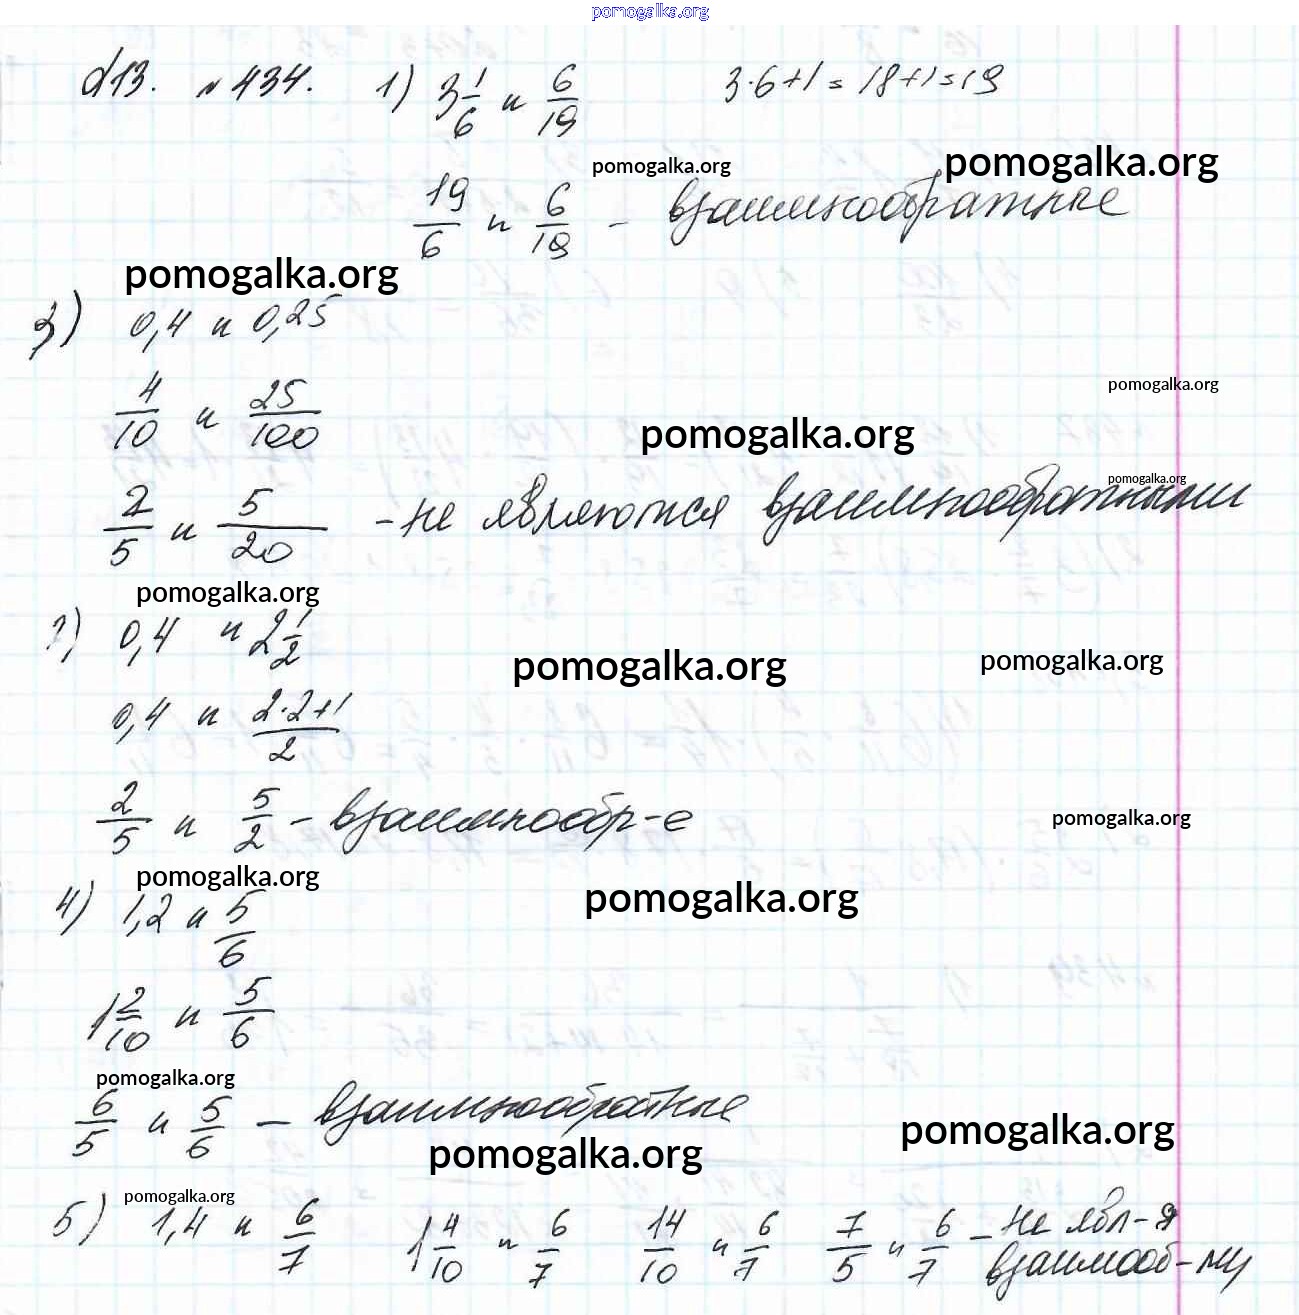 pomogalka.org
d13. № 434. 1) 3 1/6 и 6/19 3·6+1=18+1=19
pomogalka.org pomogalka.org
19/6 и 6/19 – взаимнообратные
pomogalka.org
3) 0,4 и 0,25
pomogalka.org
4/10 и 25/100
pomogalka.org
pomogalka.org
2/5 и 5/20 – не являются взаимнообратными
pomogalka.org
2) 0,4 и 2 1/2
pomogalka.org pomogalka.org
0,4 и (2·2+1)/2
2/5 и 5/2 – взаимнообр-е
pomogalka.org
pomogalka.org
4) 1,2 и 5/6
pomogalka.org
1 2/10 и 5/6
pomogalka.org
6/5 и 5/6 – взаимнообратные
pomogalka.org
pomogalka.org
pomogalka.org
5) 1,4 и 6/7 1 4/10 и 6/7 14/10 и 6/7 7/5 и 6/7 – не явл-я
взаимооб-му